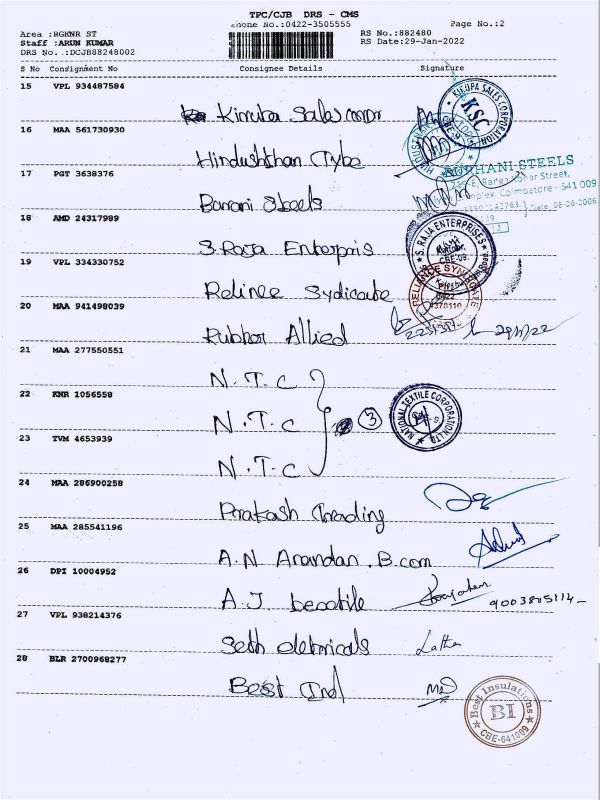 TPC/CJB DRS - CMS
Phone No.:0422-3505555
Page No.:2
Area :RGKNR ST
RS No.:882480
Staff :ARUN KUMAR
RS Date:29-Jan-2022
DRS No.:DCJB88248002
S No Consignment No Consignee Details Signature
15 VPL 934487584
Kiruba Sales
KIRUPA SALES CORPORATION
KSC
CBE-9
16 MAA 561730930
Hindushthan Tybe
17 PGT 3638376
BURHANI STEELS
Street,
Coimbatore - 541 009
Date. 08-06-2006
Barani Steels
18 AMD 24317989
S. Raja Enterpris
S. RAJA ENTERPRISES
CBE-09.
19 VPL 334330752
Relinee Sydicate
RELIANCE SYNDICATE
PH
0422
20 MAA 941498039
Rubbor Allied
21 MAA 277550551
N.T.C
22 KNR 1056558
N.T.C
3
NATIONAL TEXTILE CORPORATION LTD
23 TVM 4653939
N.T.C
24 MAA 286900258
Prakash Trading
25 MAA 285541196
A.N Anandan. B.com
26 DPI 10004952
A.J textile
9003805114
27 VPL 938214376
Seth eletricals
Latha
28 BLR 2700968277
Best Ind
Best Insulations
BI
CBE-641009